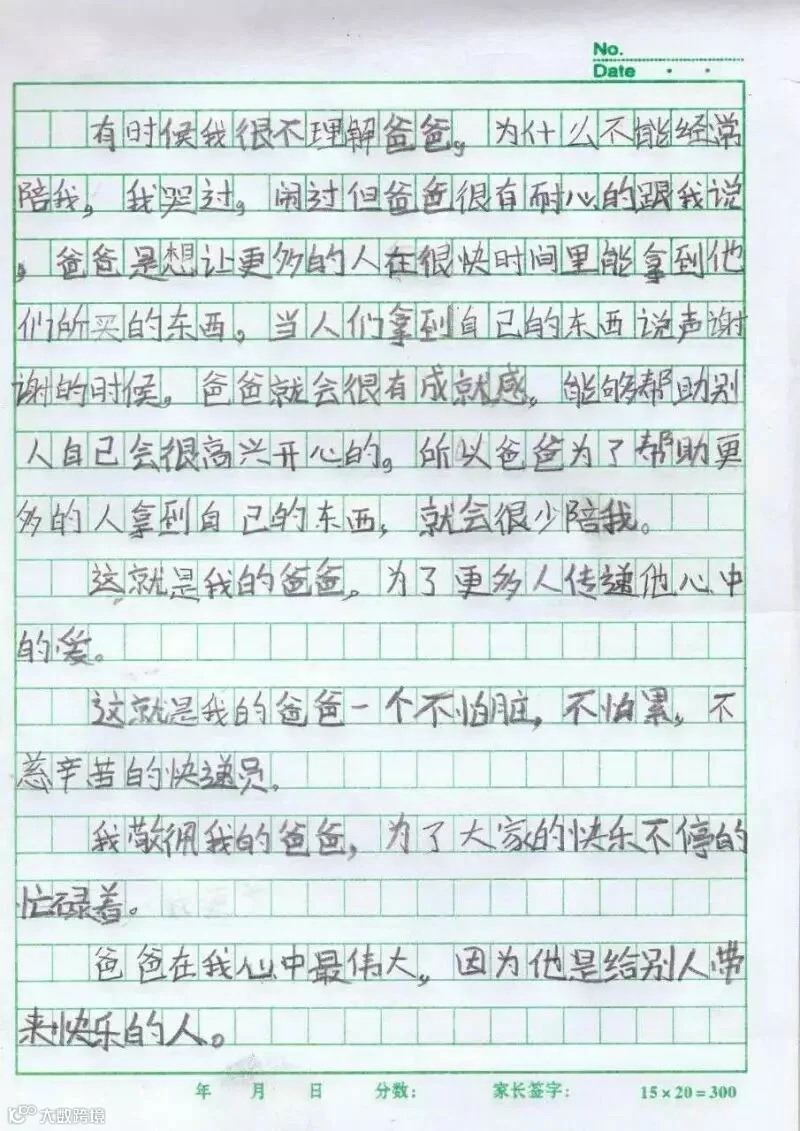 No.
Date . .
有时候我很不理解爸爸，为什么不能经常
陪我，我哭过，闹过但爸爸很有耐心的跟我说
，爸爸是想让更多的人在很快时间里能拿到他
们所买的东西。当人们拿到自己的东西说声谢
谢的时候。爸爸就会很有成就感，能够帮助别
人自己会很高兴开心的，所以爸爸为了帮助更
多的人拿到自己的东西，就会很少陪我。
这就是我的爸爸，为了更多人传递他心中
的爱。
这就是我的爸爸一个不怕脏，不怕累，不
慈辛苦的快递员。
我敬佩我的爸爸，为了大家的快乐不停的
忙碌着。
爸爸在我心中最伟大，因为他是给别人带
来快乐的人。
年 月 日 分数： 家长签字： 15×20=300
大数跨境